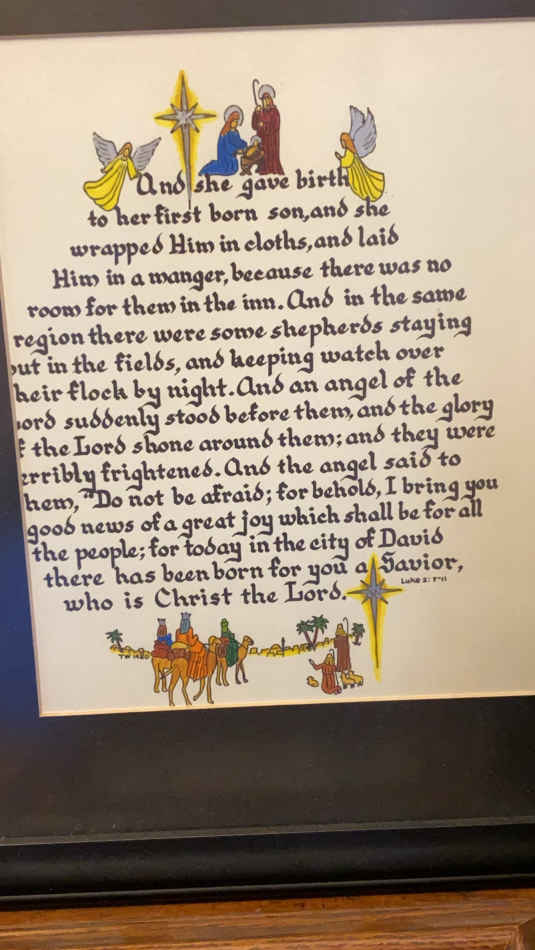 And she gave birth
to her first born son, and she
wrapped Him in cloths, and laid
Him in a manger, because there was no
room for them in the inn. And in the same
region there were some shepherds staying
out in the fields, and keeping watch over
heir flock by night. And an angel of the
ord suddenly stood before them, and the glory
f the Lord shone around them; and they were
erribly frightened. And the angel said to
hem, "Do not be afraid; for behold, I bring you
good news of a great joy which shall be for all
the people; for today in the city of David
there has been born for you a Savior,
who is Christ the Lord.
Luke 2: 7-11